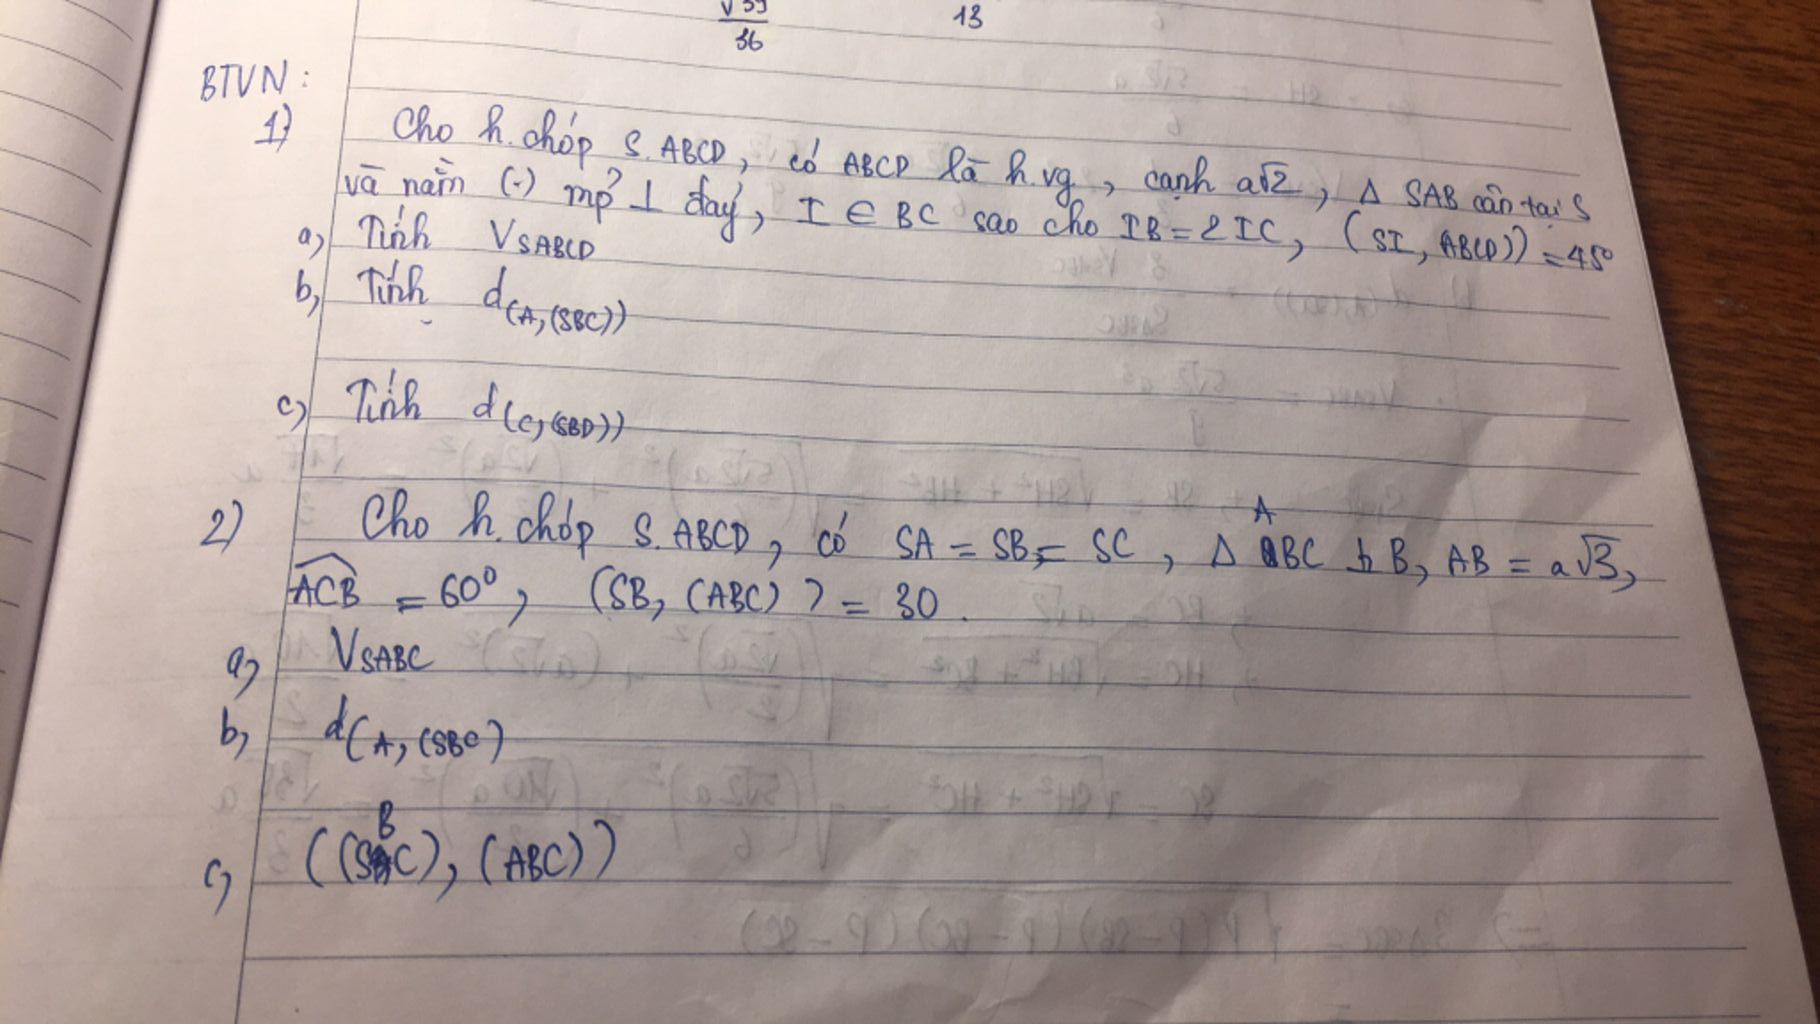 √39
36
13
BTVN:
1) Cho h.chóp S.ABCD, có ABCD là h.vg, cạnh a√2, Δ SAB cân tại S
và nằm (-) mp ⊥ đáy, I ∈ BC sao cho IB = 2 IC, (SI, ABCD)) = 45°
a, Tính V_SABCD
b, Tính d(A,(SBC))
c, Tính d(C,(SBD))
2) Cho h.chóp S.ABCD, có SA = SB = SC, Δ ABC ⊥ B, AB = a√3,
ACB = 60°, (SB, (ABC)) = 30.
a, V_SABC
b, d(A, (SBC)
c, ((SBC), (ABC))